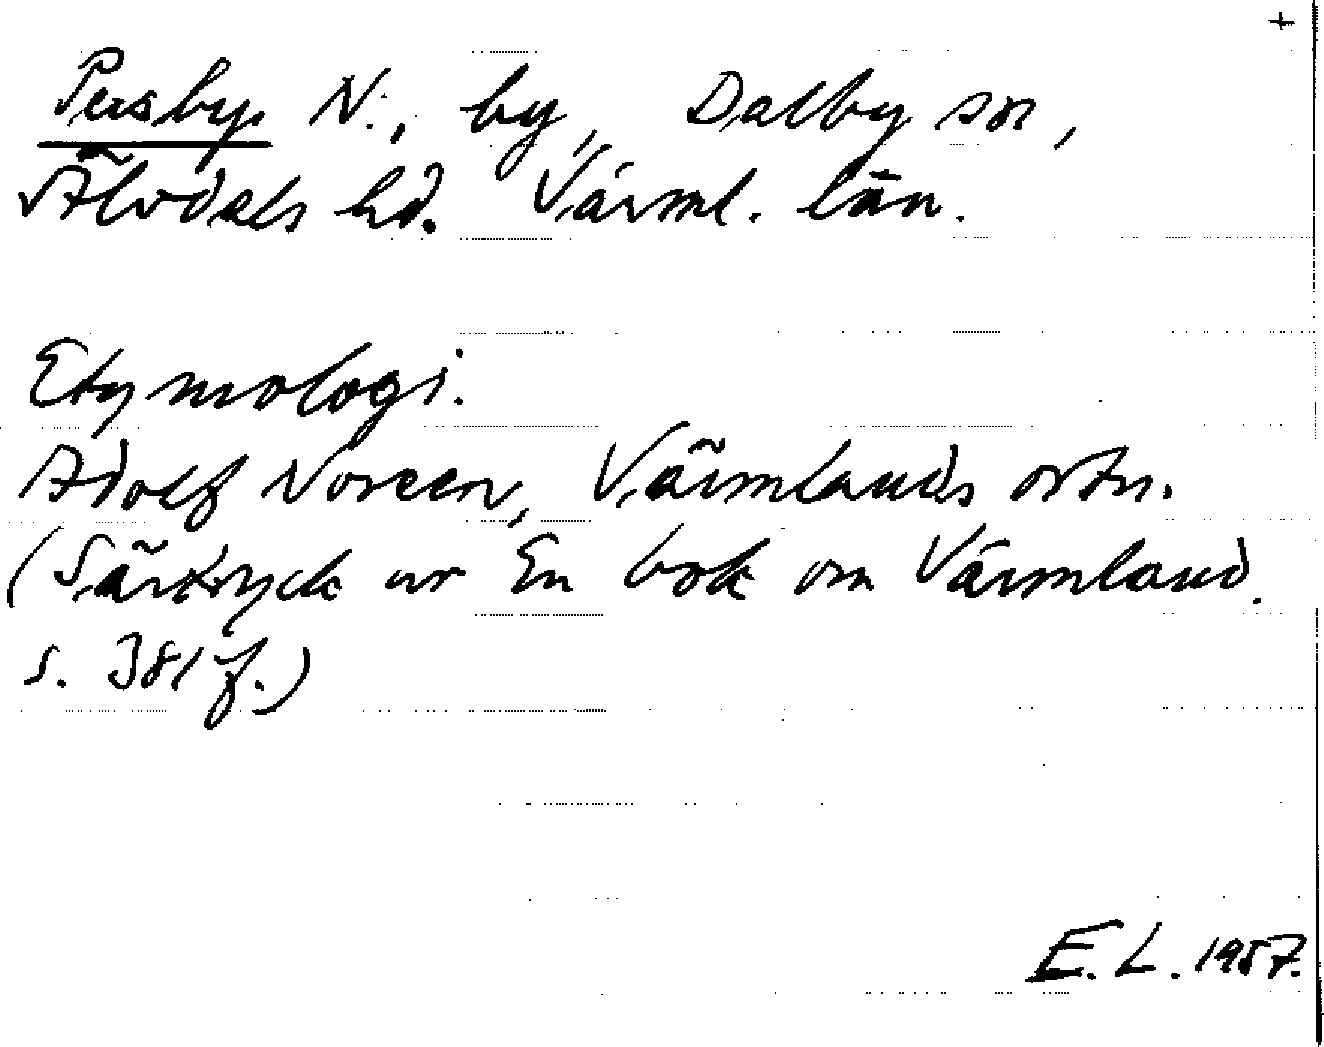 +
Persby, N., by, Dalby sn,
Älvdals hd. Värml. län.
Etymologi.
Adolf Noreen, Värmlands ortn.
(Särtryck ur En bok om Värmland.
s. 381 f.)
E. L. 1957.